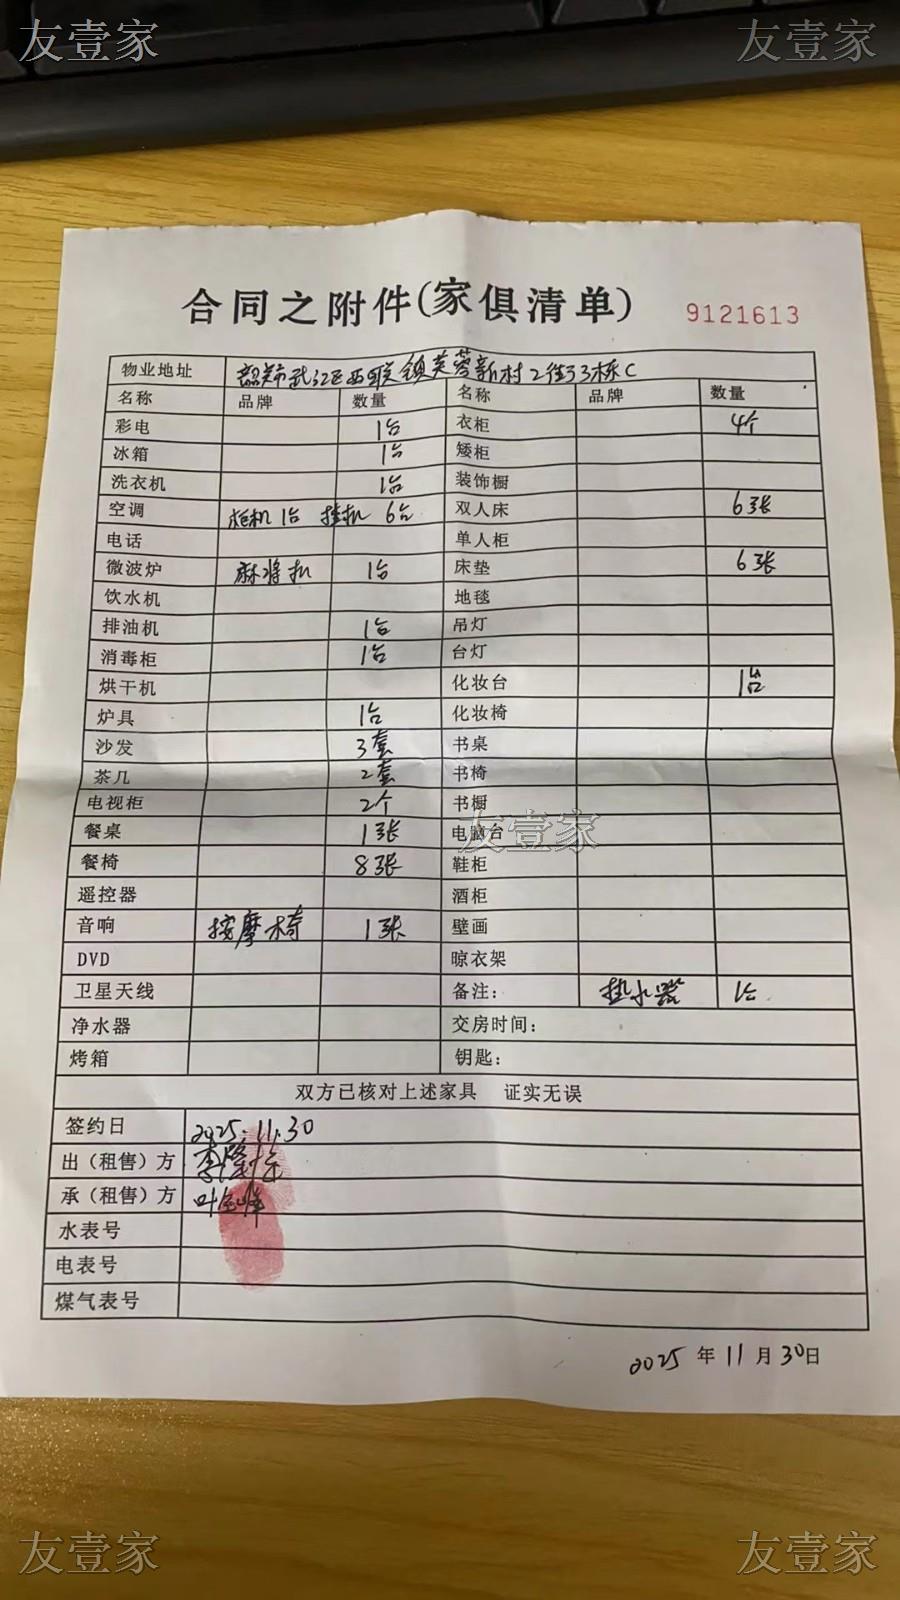 友壹家 友壹家
合同之附件(家俱清单) 9121613
物业地址 韶关市武江区西联镇芙蓉新村2街33栋C
名称 品牌 数量 名称 品牌 数量
彩电 1台 衣柜 4个
冰箱 1台 矮柜
洗衣机 1台 装饰橱
空调 柜机1台 挂机 6台 双人床 6张
电话 单人柜
微波炉 麻将机 1台 床垫 6张
饮水机 地毯
排油机 1台 吊灯
消毒柜 1台 台灯
烘干机 化妆台 1台
炉具 1台 化妆椅
沙发 3套 书桌
茶几 2套 书椅
电视柜 2个 书橱
餐桌 1张 电脑台
友壹家
餐椅 8张 鞋柜
遥控器 酒柜
音响 按摩椅 1张 壁画
DVD 晾衣架
卫星天线 备注: 热水器 1台
净水器 交房时间:
烤箱 钥匙:
双方已核对上述家具 证实无误
签约日 2025.11.30
出（租售）方 李
承（租售）方 叶
水表号
电表号
煤气表号
2025 年 11 月 30 日
友壹家 友壹家